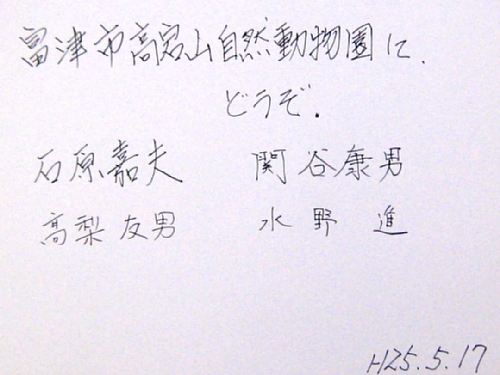 富津市高宕山自然動物園に.
どうぞ.
石原嘉夫 関谷康男
高梨友男 水野 進
H25.5.17